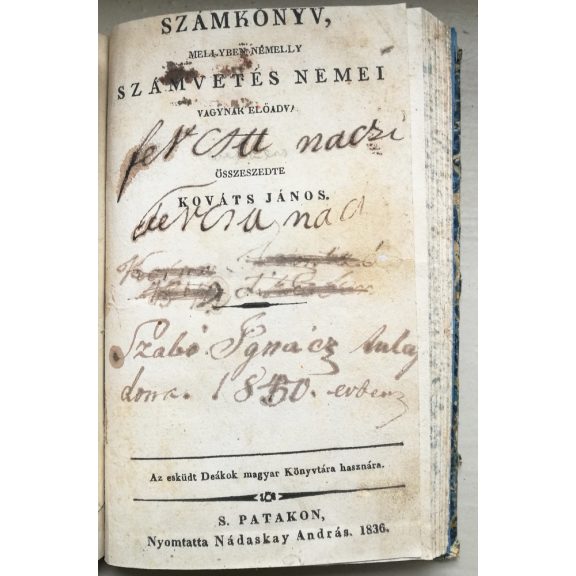 SZÁMKÖNYV,
MELLYBEN NÉMELLY
SZÁMVETÉS NEMEI
VAGYNAK ELŐADVA
naczi
ÖSSZESZEDTE
KOVÁTS JÁNOS.
Szabó Ignácz tulaj
dona. 1850. evben
Az esküdt Deákok magyar Könyvtára hasznára.
S. PATAKON,
Nyomtatta Nádaskay András. 1836.